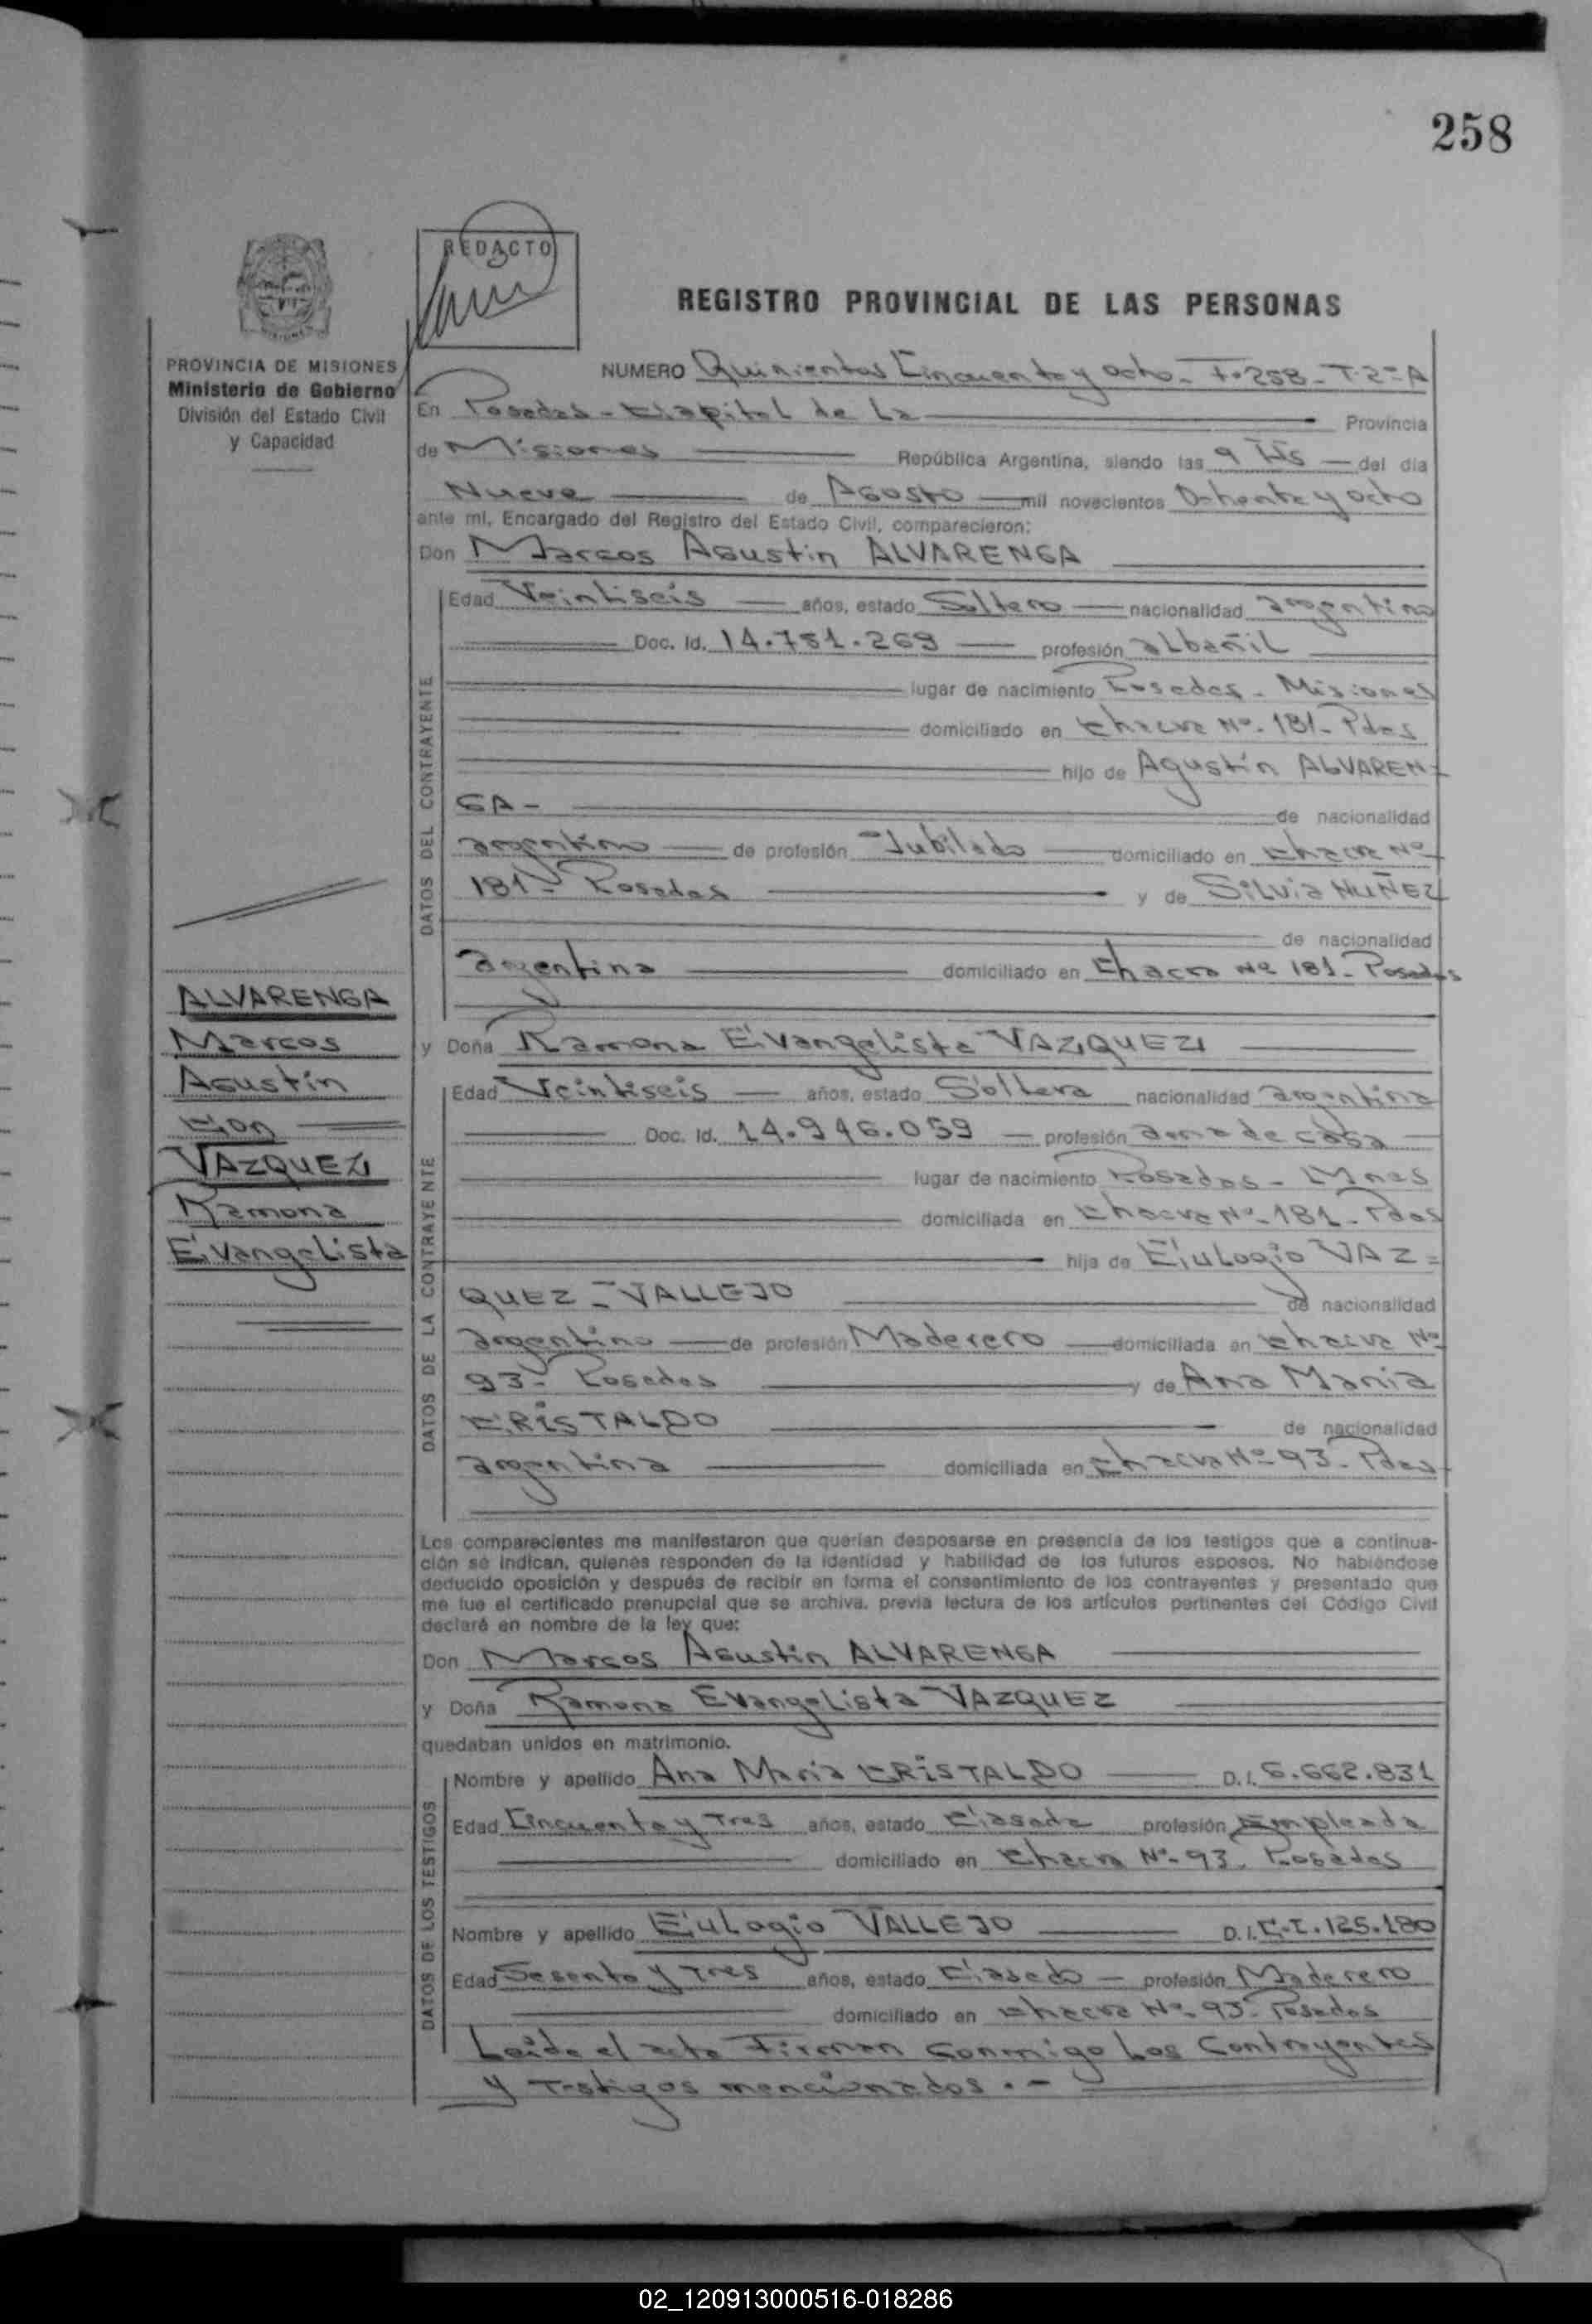 258
REDACTO
REGISTRO PROVINCIAL DE LAS PERSONAS
PROVINCIA DE MISIONES
Ministerio de Gobierno
División del Estado Civil
y Capacidad
NUMERO Quinientos Cincuenta y ocho - Fº 258 - T. 2º A
En Posadas - Capital de La Provincia
de Misiones República Argentina, siendo las 9 Hs del día
Nueve de Agosto mil novecientos Ochenta y ocho
ante mi, Encargado del Registro del Estado Civil, comparecieron:
Don Marcos Agustin ALVARENGA
DATOS DEL CONTRAYENTE
Edad Veintiseis años, estado Soltero nacionalidad argentino
Doc. Id. 14.751.269 profesión albañil
lugar de nacimiento Posadas - Misiones
domiciliado en Chacra Nº 181 - Pdas
hijo de Agustín ALVAREN-
GA - de nacionalidad
argentino de profesión Jubilado domiciliado en Chacra Nº
181 - Posadas y de Silvia NUÑEZ
de nacionalidad
argentina domiciliado en Chacra Nº 181 - Posadas
ALVARENGA
Marcos
Agustin
Con
VAZQUEZ
Ramona
Evangelista
y Doña Ramona Evangelista VAZQUEZ
DATOS DE LA CONTRAYENTE
Edad Veintiseis años, estado Soltera nacionalidad argentina
Doc. Id. 14.946.059 profesión ama de casa
lugar de nacimiento Posadas - Mnes
domiciliada en Chacra Nº 181 - Pdas
hija de Eulogio VAZ=
QUEZ - VALLEJO de nacionalidad
argentino de profesión Maderero domiciliada en Chacra Nº
93 - Posadas y de Ana Maria
CRISTALDO de nacionalidad
argentina domiciliada en Chacra Nº 93 - Pdas
Los comparecientes me manifestaron que querían desposarse en presencia de los testigos que a continua-
ción se indican, quienes responden de la identidad y habilidad de los futuros esposos. No habiéndose
deducido oposición y después de recibir en forma el consentimiento de los contrayentes y presentado que
me fue el certificado prenupcial que se archiva, previa lectura de los artículos pertinentes del Código Civil
declaré en nombre de la ley que:
Don Marcos Agustin ALVARENGA
y Doña Ramona Evangelista VAZQUEZ
quedaban unidos en matrimonio.
DATOS DE LOS TESTIGOS
Nombre y apellido Ana Maria CRISTALDO D.I. 6.662.831
Edad Cincuenta y Tres años, estado Casada profesión Empleada
domiciliado en Chacra Nº 93 - Posadas
Nombre y apellido Eulogio VALLEJO D.I. C.I. 125.180
Edad Sesenta y Tres años, estado Casado profesión Maderero
domiciliado en Chacra Nº 93 - Posadas
Leida el acta Firman conmigo Los Contrayentes
y Testigos mencionados . -
02_120913000516-018286